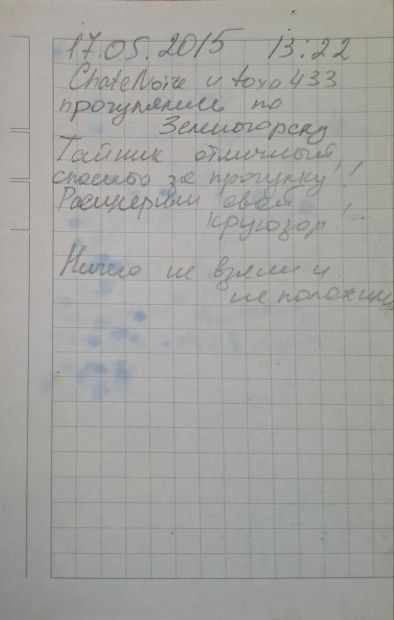 17.05.2015 13:22
ChateNoire и toxo433
прогулялись по
Зеленогорску
Тайник отличный,
спасибо за прогулку!
Расширили свой
кругозор!
Ничего не взяли и
не положили